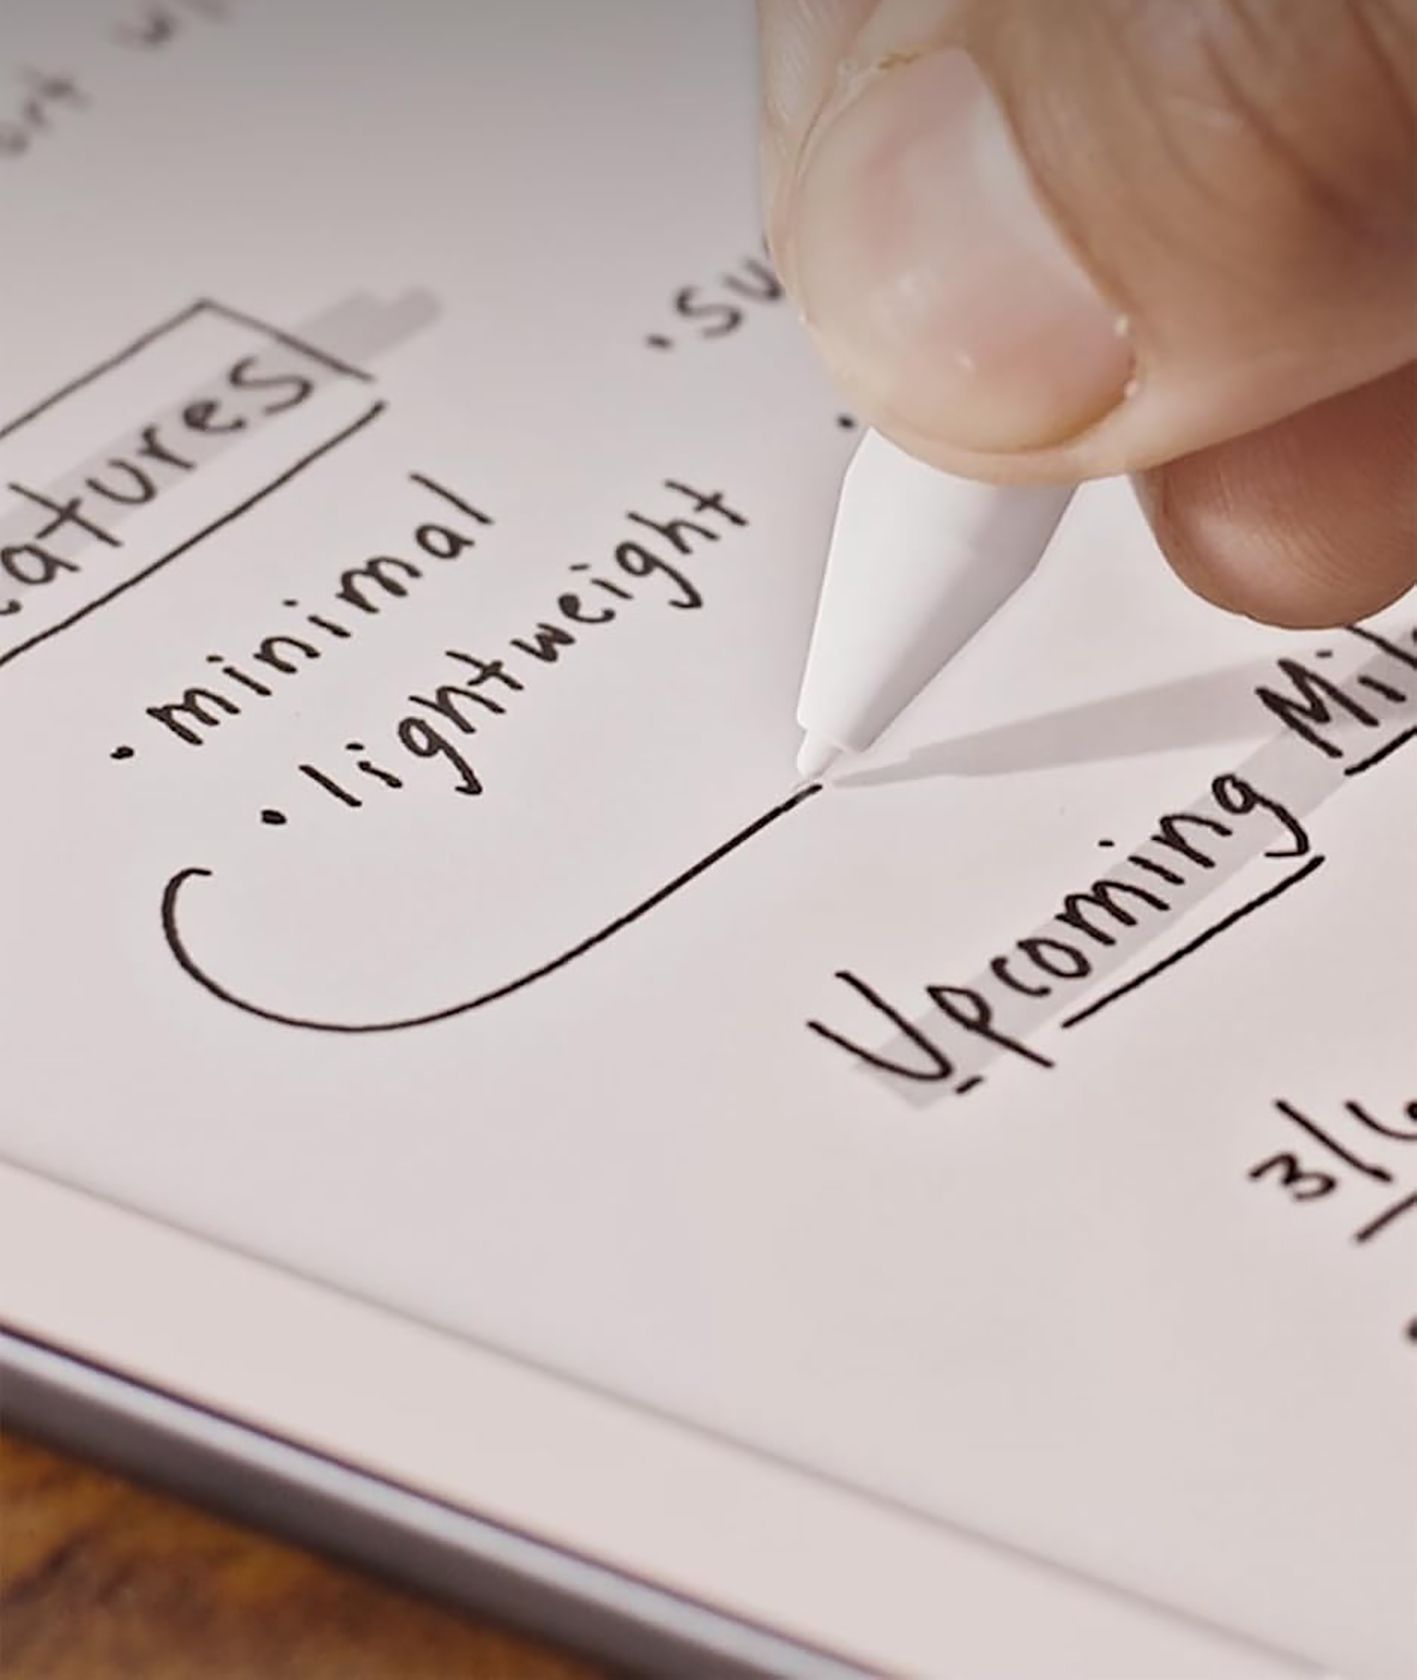 atures
• minimal
• lightweight
• su
•
Upcoming Mil
3/6